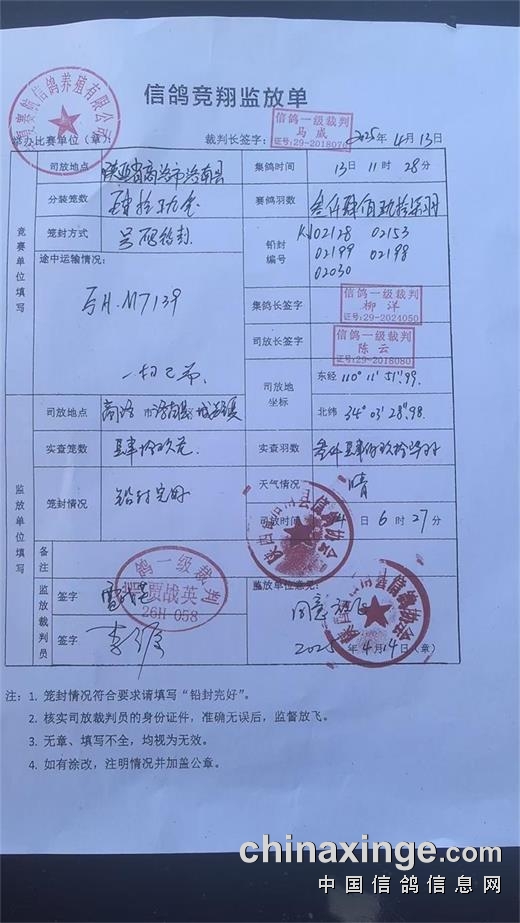 信鸽竞翔监放单
举办比赛单位(章): 裁判长签字: 信鸽一级裁判 马威 证号:29-2018076 2025年4月13日
竞赛单位填写
司放地点 陕西省商洛市洛南县 集鸽时间 13日11时28分
分装笼数 肆拾玖笼 赛鸽羽数 叁仟肆佰玖拾柒羽
笼封方式 号码铅封 铅封编号 02128 02153
02199 02198
02030
途中运输情况:
M7139
一切正常.
集鸽长签字 信鸽一级裁判 柳洋 证号:29-2024050
司放长签字 信鸽一级裁判 陈云 证号:29-2018080
司放地坐标 东经 110°11′51″.99
北纬 34°03′28″.98
监放单位填写
司放地点 商洛市洛南县区 实查笼数 肆拾玖笼 实查羽数
笼封情况 铅封完好 天气情况 晴
司放时间 14日6时27分
备注
监放裁判员 签字 鸽一级裁判 贾战英 26H 058
签字
监放单位意见: 同意放飞
2025年4月14日(章)
注: 1. 笼封情况符合要求请填写“铅封完好”。
2. 核实司放裁判员的身份证件,准确无误后,监督放飞。
3. 无章、填写不全,均视为无效。
4. 如有涂改,注明情况并加盖公章。
chinaxinge.com
中国信鸽信息网